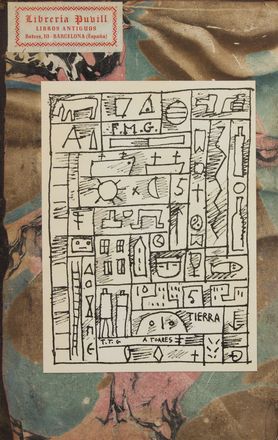 Librería Puvill
LIBROS ANTIGUOS
Boters, 10 - BARCELONA (España)
F.M.G.
5
5
TIERRA
T.T.G
A TOARES